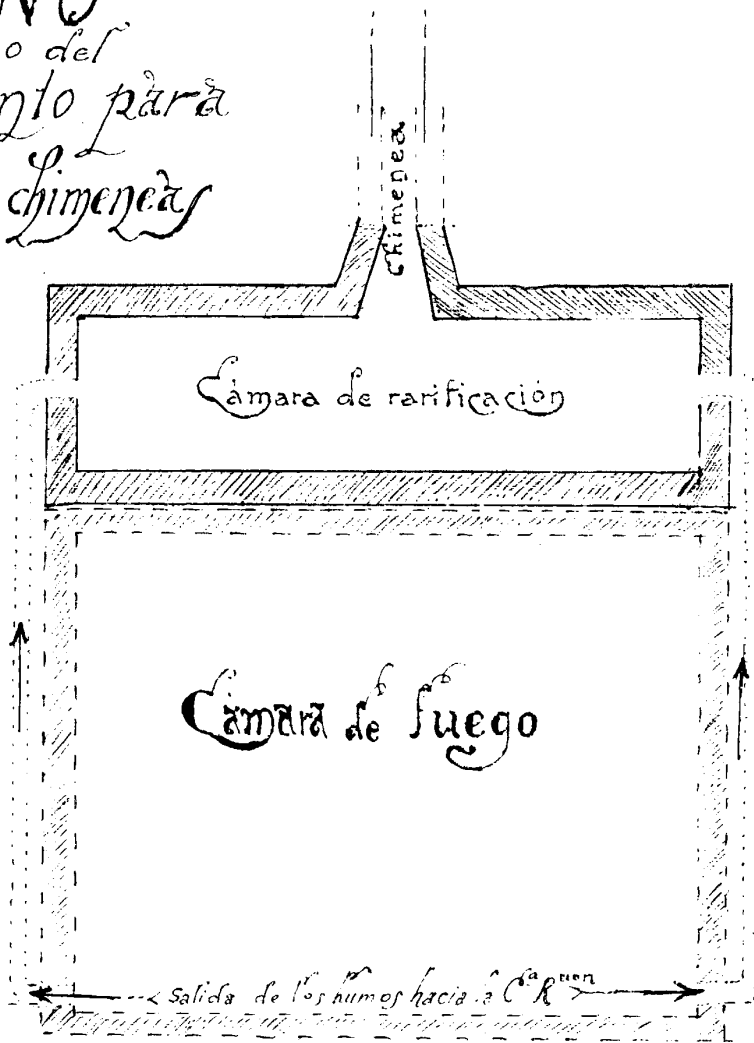 o del
para
chimeneas
Chimenea
Cámara de rarificación
Cámara de fuego
Salida de los humos hacia la Cª Rᵘᵒⁿ